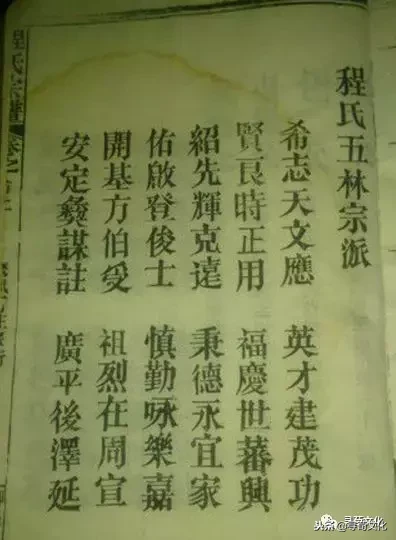 程氏五林宗派
希志天文應 英才建茂功
賢良時正用 福慶世蕃興
紹先輝克遠 秉德永宜家
佑啟登俊士 慎勤咏樂嘉
開基方伯受 祖烈在周宣
安定發謀註 廣平後澤延
程氏宗譜
头条 @寻奇文化
寻奇文化